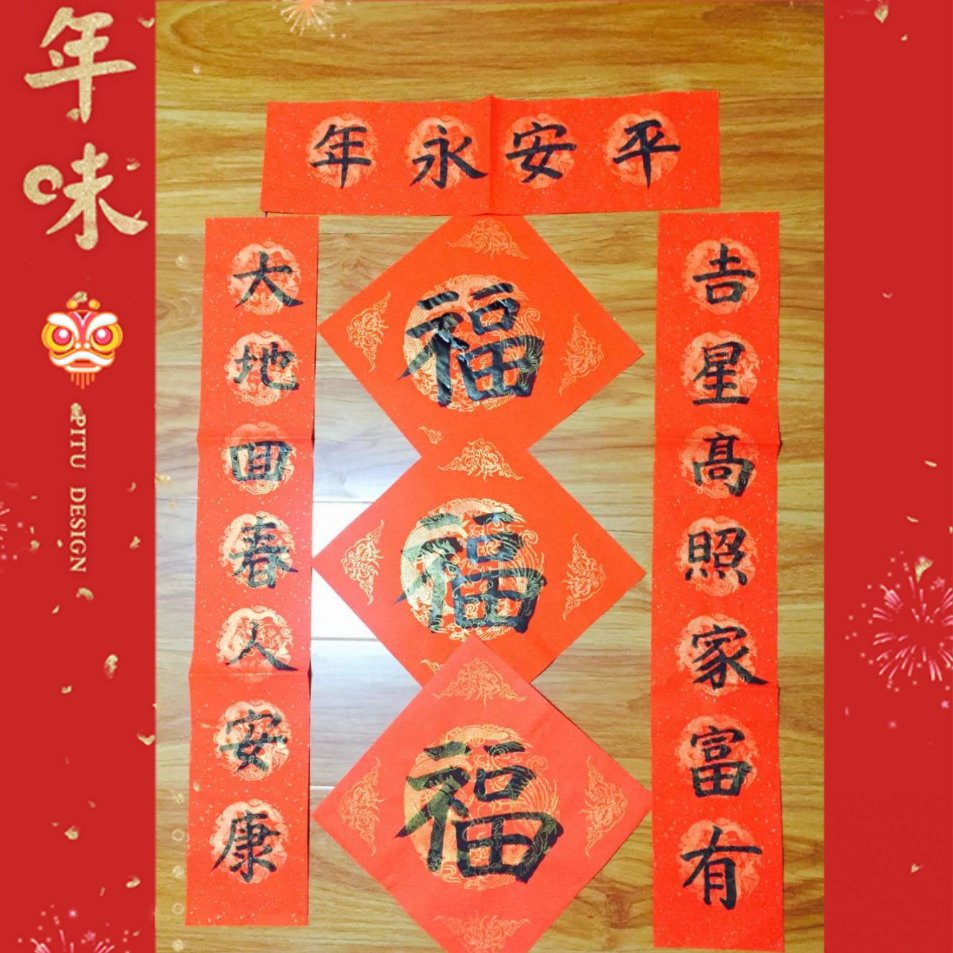 年味
PITU DESIGN
平安永年
吉星高照家富有
大地回春人安康
福
福
福